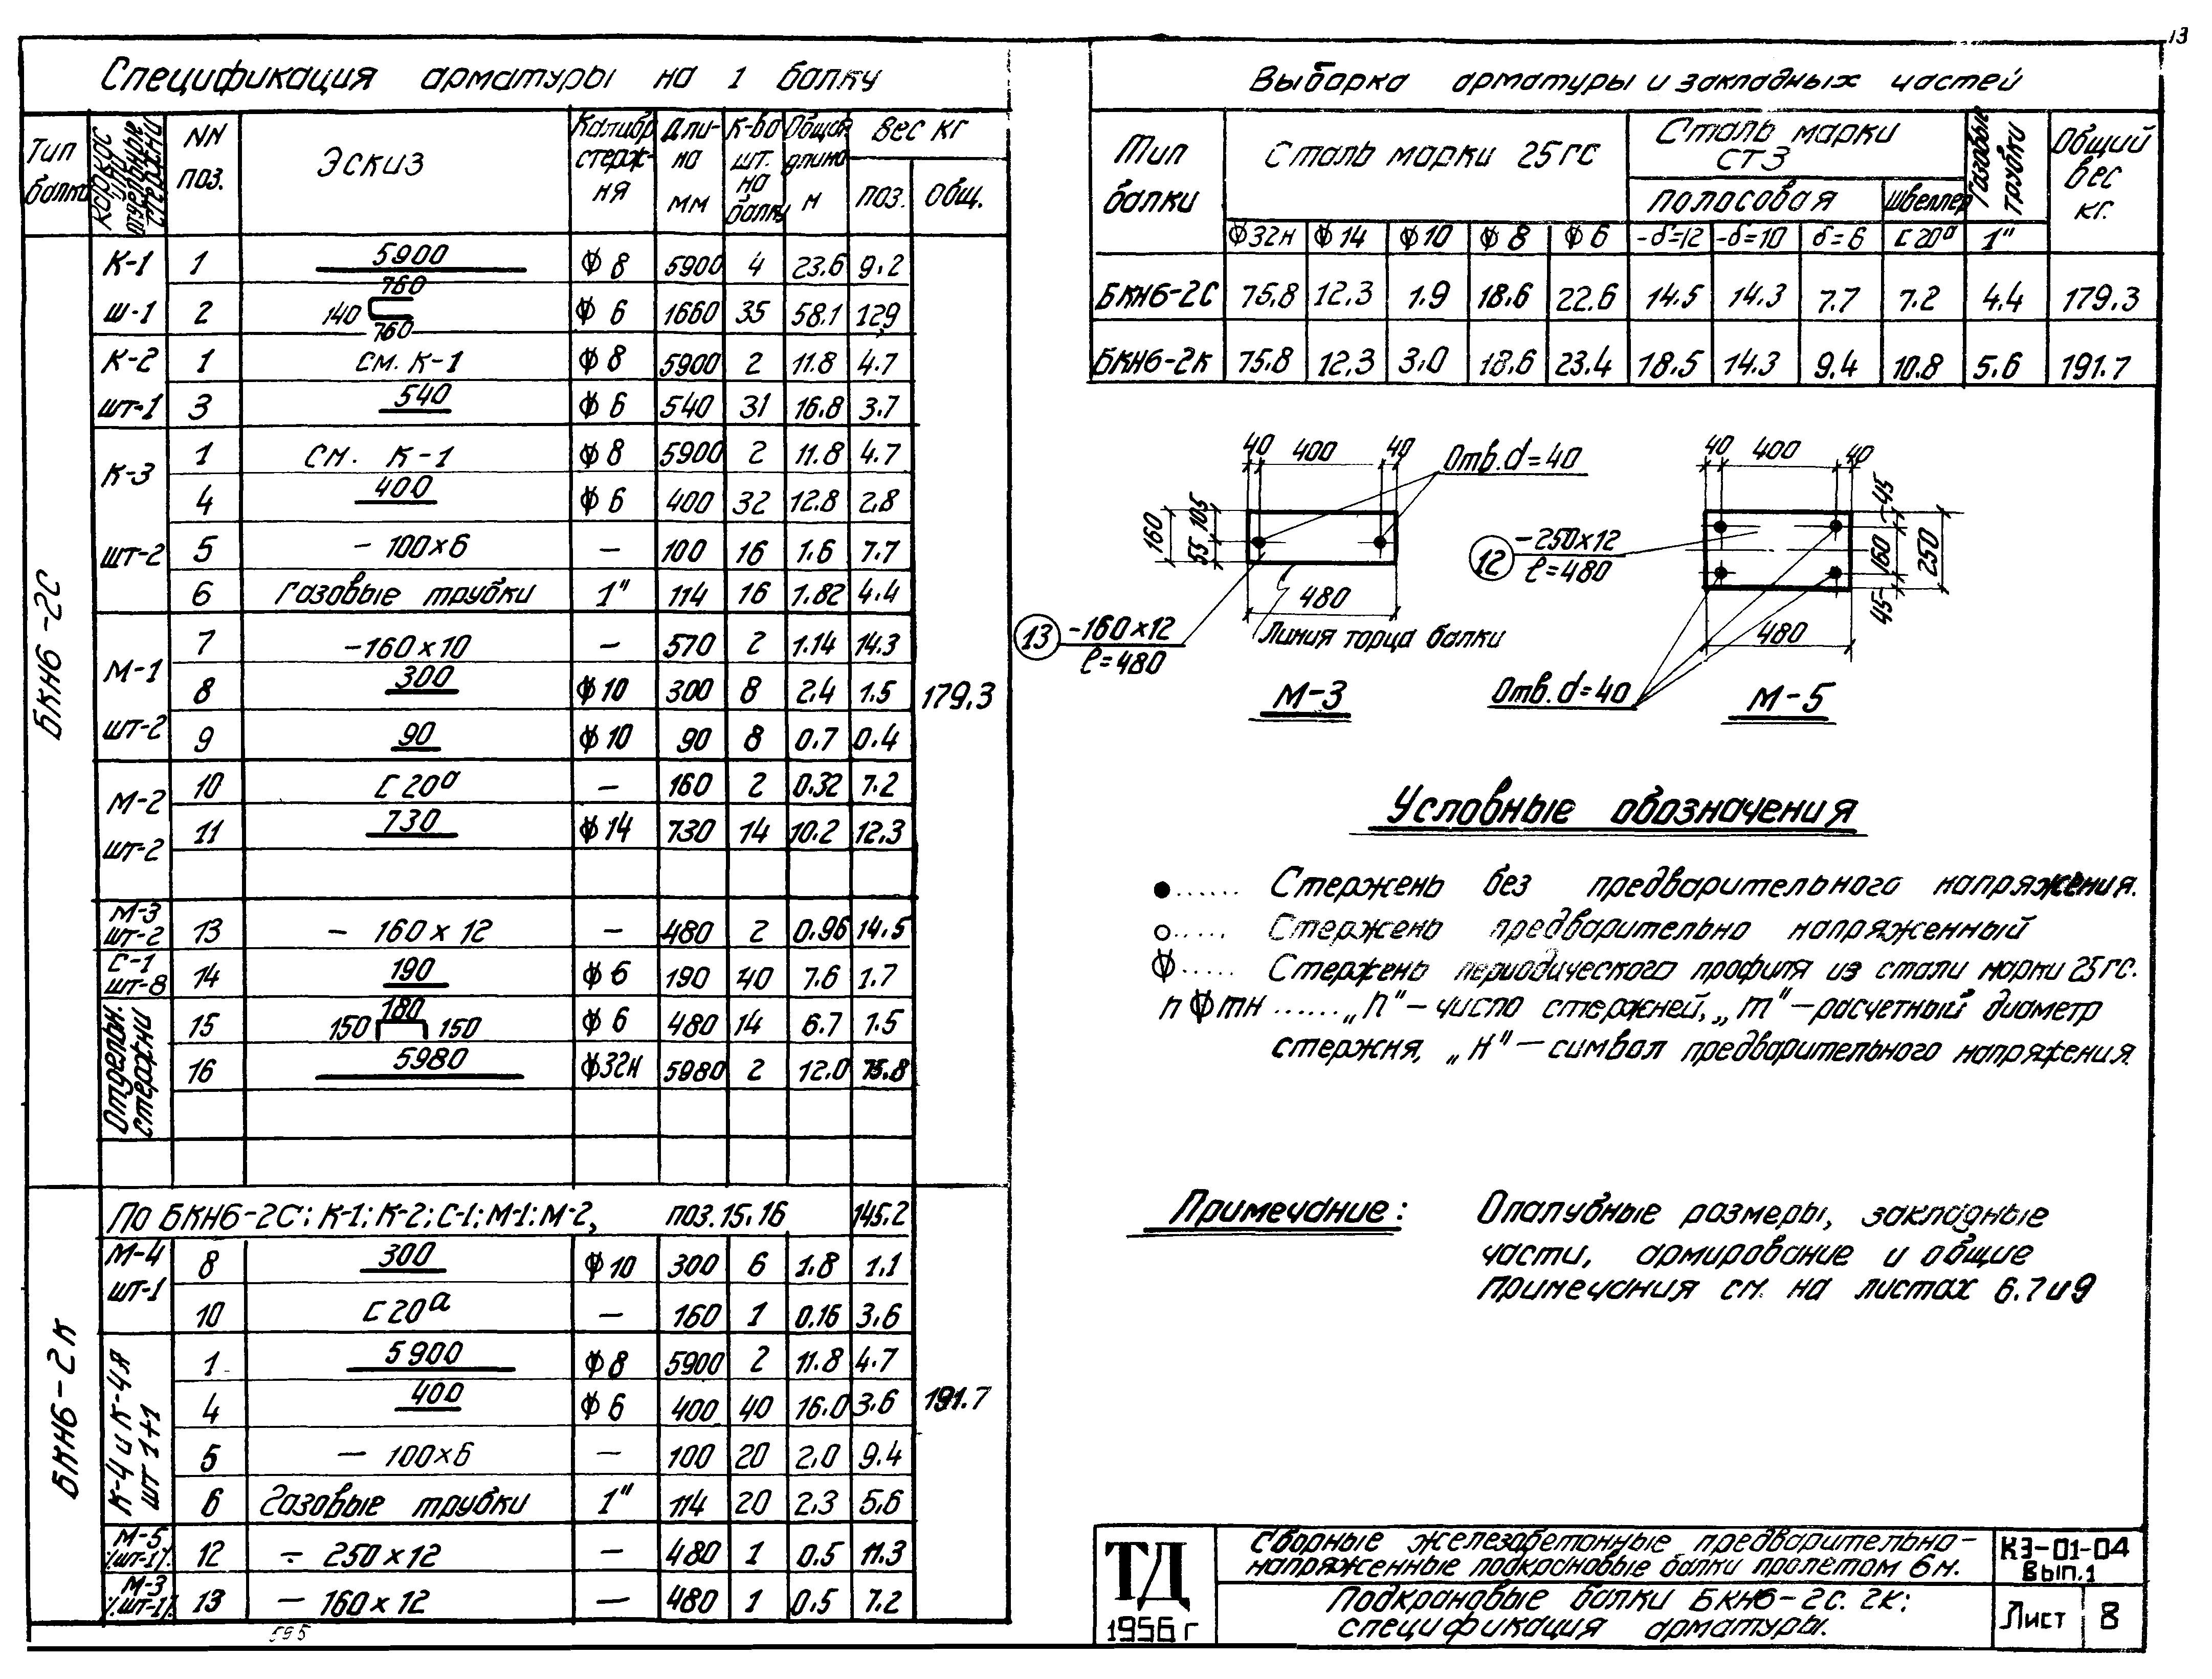 13
Спецификация арматуры на 1 балку
Тип балки | Каркас или отдельные стержни | NN поз. | Эскиз | Калибр стерж-ня | Дли-на мм | К-во шт. на балку | Общая длина м | Вес кг поз. | общ.
БКН6-2С
К-1 | 1 | 5900 | ф 8 | 5900 | 4 | 23.6 | 9.2
Ш-1 | 2 | 140 760 760 | ф 6 | 1660 | 35 | 58.1 | 12,9
К-2 | 1 | см. К-1 | ф 8 | 5900 | 2 | 11.8 | 4.7
шт-1 | 3 | 540 | ф 6 | 540 | 31 | 16.8 | 3.7
К-3 | 1 | см. К-1 | ф 8 | 5900 | 2 | 11.8 | 4.7
4 | 400 | ф 6 | 400 | 32 | 12.8 | 2.8
шт-2 | 5 | – 100×6 | – | 100 | 16 | 1.6 | 7.7
6 | газовые трубки | 1" | 114 | 16 | 1.82 | 4.4
М-1 | 7 | –160×10 | – | 570 | 2 | 1.14 | 14.3
8 | 300 | ф 10 | 300 | 8 | 2.4 | 1.5 | 179.3
шт-2 | 9 | 90 | ф 10 | 90 | 8 | 0.7 | 0.4
М-2 | 10 | С 20а | – | 160 | 2 | 0.32 | 7.2
шт-2 | 11 | 730 | ф 14 | 730 | 14 | 10.2 | 12.3
М-3 шт-2 | 13 | – 160 × 12 | – | 480 | 2 | 0.96 | 14.5
С-1 шт-8 | 14 | 190 | ф 6 | 190 | 40 | 7.6 | 1.7
Отдельн. стержни | 15 | 150 180 150 | ф 6 | 480 | 14 | 6.7 | 1.5
16 | 5980 | ф 32н | 5980 | 2 | 12.0 | 75.8
БКН6-2К
По БКН6-2С: К-1; К-2; С-1; М-1; М-2, поз. 15, 16 | 145.2
М-4 | 8 | 300 | ф 10 | 300 | 6 | 1.8 | 1.1
шт-1 | 10 | С 20а | – | 160 | 1 | 0.16 | 3.6
К-4 и К-4я шт 1+1 | 1 | 5900 | ф 8 | 5900 | 2 | 11.8 | 4.7
4 | 400 | ф 6 | 400 | 40 | 16.0 | 3.6 | 191.7
5 | – 100×6 | – | 100 | 20 | 2.0 | 9.4
6 | Газовые трубки | 1" | 114 | 20 | 2.3 | 5.6
М-5 (шт-1) | 12 | – 250×12 | – | 480 | 1 | 0.5 | 11.3
М-3 (шт-1) | 13 | – 160×12 | – | 480 | 1 | 0.5 | 7.2
595
Выборка арматуры и закладных частей
Тип балки | Сталь марки 25гс | Сталь марки СТ3 | Газовые трубки | Общий вес кг.
полосовая | швеллер
ф 32н | ф 14 | ф 10 | ф 8 | ф 6 | –δ=12 | –δ=10 | δ=6 | С 20а | 1"
БКН6-2С | 75.8 | 12.3 | 1.9 | 18.6 | 22.6 | 14.5 | 14.3 | 7.7 | 7.2 | 4.4 | 179.3
БКН6-2к | 75.8 | 12.3 | 3.0 | 18.6 | 23.4 | 18.5 | 14.3 | 9.4 | 10.8 | 5.6 | 191.7
40 400 40
Отв. d=40
160 55 105
480
13 –160×12
ℓ=480
Линия торца балки
М-3
40 400 40
12 –250×12
ℓ=480
45 160 45 250
480
Отв. d=40
М-5
Условные обозначения
●...... Стержень без предварительного напряжения.
○..... Стержень предварительно напряженный
ф..... Стержень периодического профиля из стали марки 25гс.
n ф mн ...... „n" – число стержней, „m" – расчетный диаметр
стержня, „н" – символ предварительного напряжения.
Примечание: Опалубные размеры, закладные
части, армирование и общие
примечания см. на листах 6.7 и 9
ТД
1956 г
Сборные железобетонные предварительно-
напряженные подкрановые балки пролетом 6м.
КЭ-01-04
Вып.1
Подкрановые балки БКН6-2с. 2к;
спецификация арматуры.
Лист 8